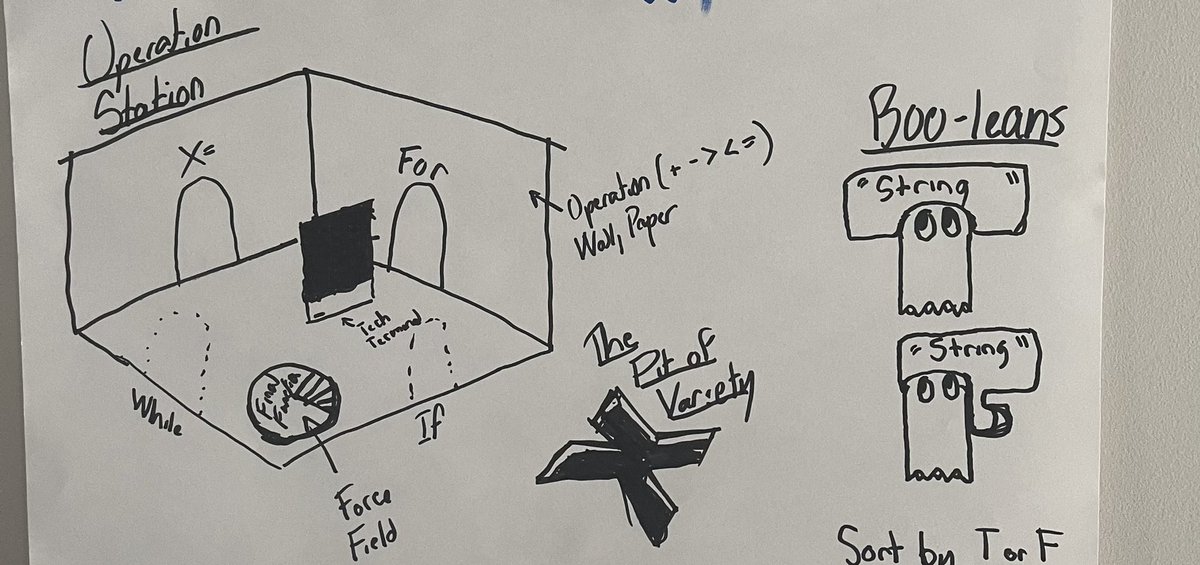 Operation
Station
X=
For
Operation (+ - > < =)
Wall Paper
Tech
Terminal
While
Final
Function
If
Force
Field
The
Pit of
Variety
Boo-leans
"String"
"String"
Sort by T or F